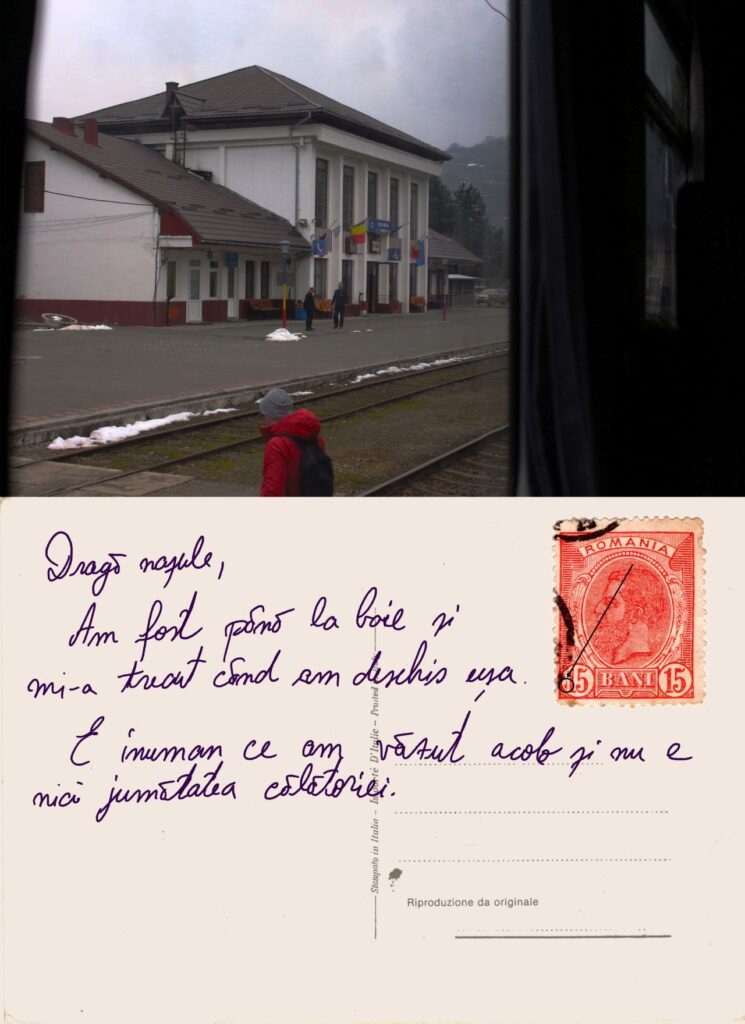 ROMANIA
15 BANI 15
Dragă nașule,
Am fost până la baie și
mi-a trecut când am deschis ușa.
E inuman ce am văzut acolo și nu e
nici jumătatea călătoriei.
Stampato in Italia – D'Italie – Printed
Riproduzione da originale